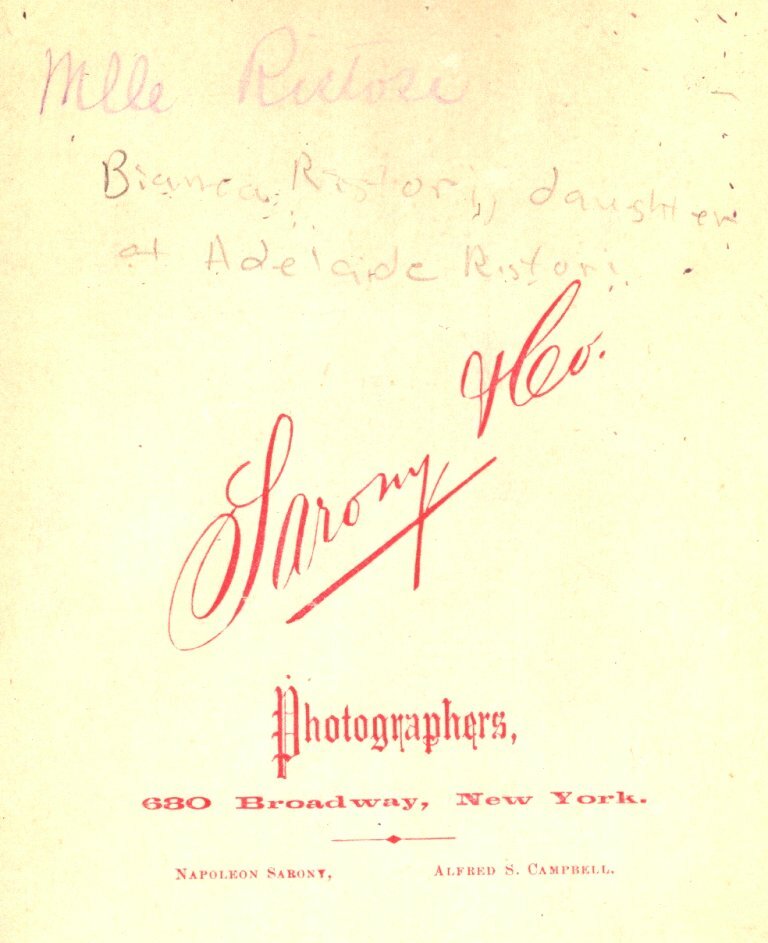 Mlle Ristori
Bianca Ristori, daughter
of Adelaide Ristori
Sarony & Co.
Photographers,
680 Broadway, New York.
NAPOLEON SARONY, ALFRED S. CAMPBELL.